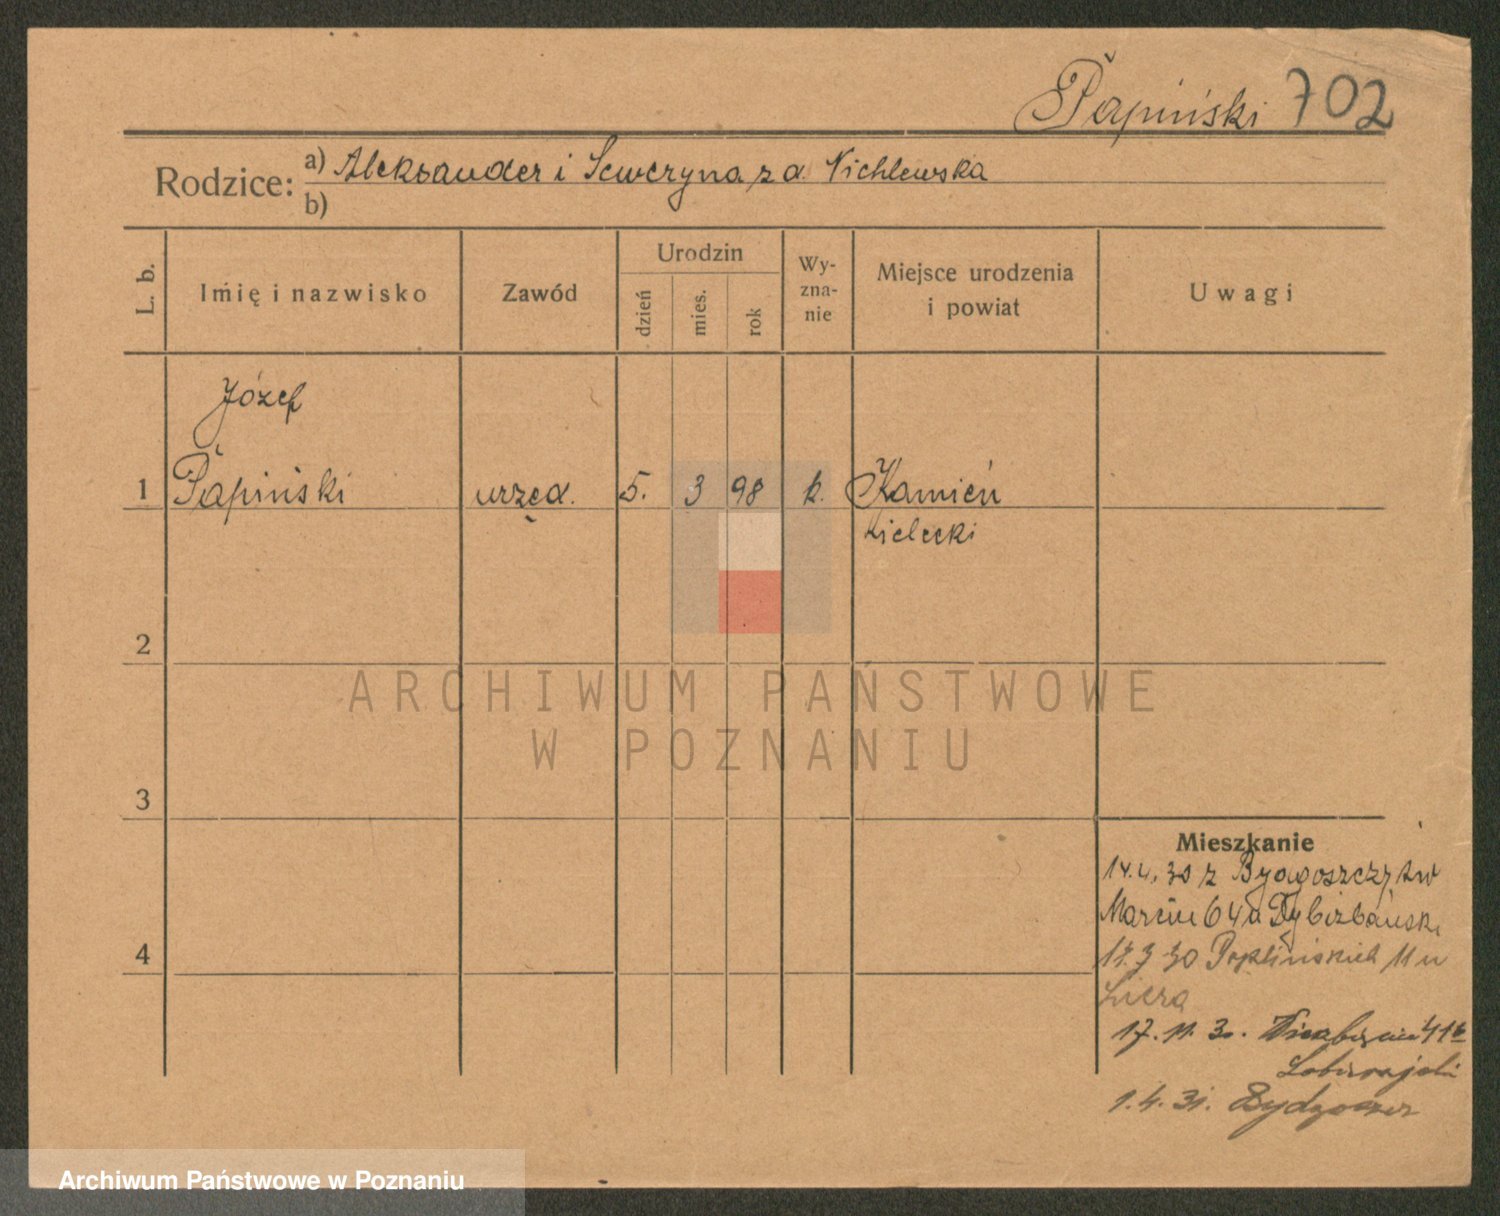 Papiński 702
Rodzice: a) Aleksander i Seweryna z d. Nichlewska
b)
L. b.
Imię i nazwisko
Zawód
Urodzin
dzień
mies.
rok
Wy-
zna-
nie
Miejsce urodzenia
i powiat
Uwagi
Józef
1 Papiński urzęd. 5. 3 98 k. Kamień
kielecki
2
ARCHIWUM PAŃSTWOWE
W POZNANIU
3
Mieszkanie
14.4.30 z Bydgoszczy
Marcin 64
30 11 u
17. 11. 30.
4
1.4.31. Bydgoszcz
Archiwum Państwowe w Poznaniu